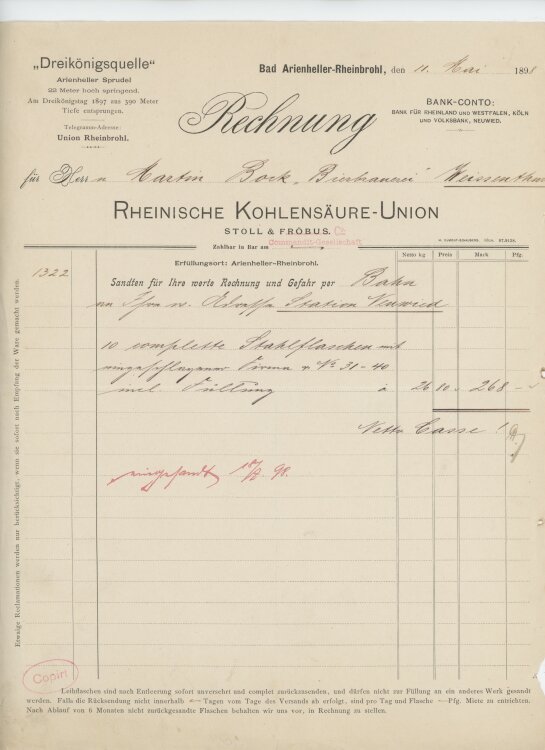 „Dreikönigsquelle“
Arienheller Sprudel
22 Meter hoch springend.
Am Dreikönigstag 1897 aus 390 Meter
Tiefe entsprungen.
Telegramm-Adresse:
Union Rheinbrohl.
Bad Arienheller-Rheinbrohl, den 11. Mai 1898
BANK-CONTO:
BANK FÜR RHEINLAND UND WESTFALEN, KÖLN
UND VOLKSBANK, NEUWIED.
Rechnung
für Herrn Martin Bock „Bierbrauerei“ Weissenthurm
RHEINISCHE KOHLENSÄURE-UNION
STOLL & FRÖBUS. Co
Commandit-Gesellschaft
Zahlbar in Bar am
Erfüllungsort: Arienheller-Rheinbrohl.
Netto kg Preis Mark Pfg.
1322
Sandten für Ihre werte Rechnung und Gefahr per Bahn
an Ihre w. Adresse Station Neuwied
10 complette Stahlflaschen mit
eingeschlagener Firma & No 31-40
incl. Füllung à 26 80 268 -
Netto Cassa!
eingesandt 98.
Copirt
Etwaige Reclamationen werden nur berücksichtigt, wenn sie sofort nach Empfang der Ware gemacht werden.
Leihflaschen sind nach Entleerung sofort unversehrt und complet zurückzusenden, und dürfen nicht zur Füllung an ein anderes Werk gesandt
werden. Falls die Rücksendung nicht innerhalb Tagen vom Tage des Versands ab erfolgt, sind pro Tag und Flasche Pfg. Miete zu entrichten.
Nach Ablauf von 6 Monaten nicht zurückgesandte Flaschen behalten wir uns vor, in Rechnung zu stellen.